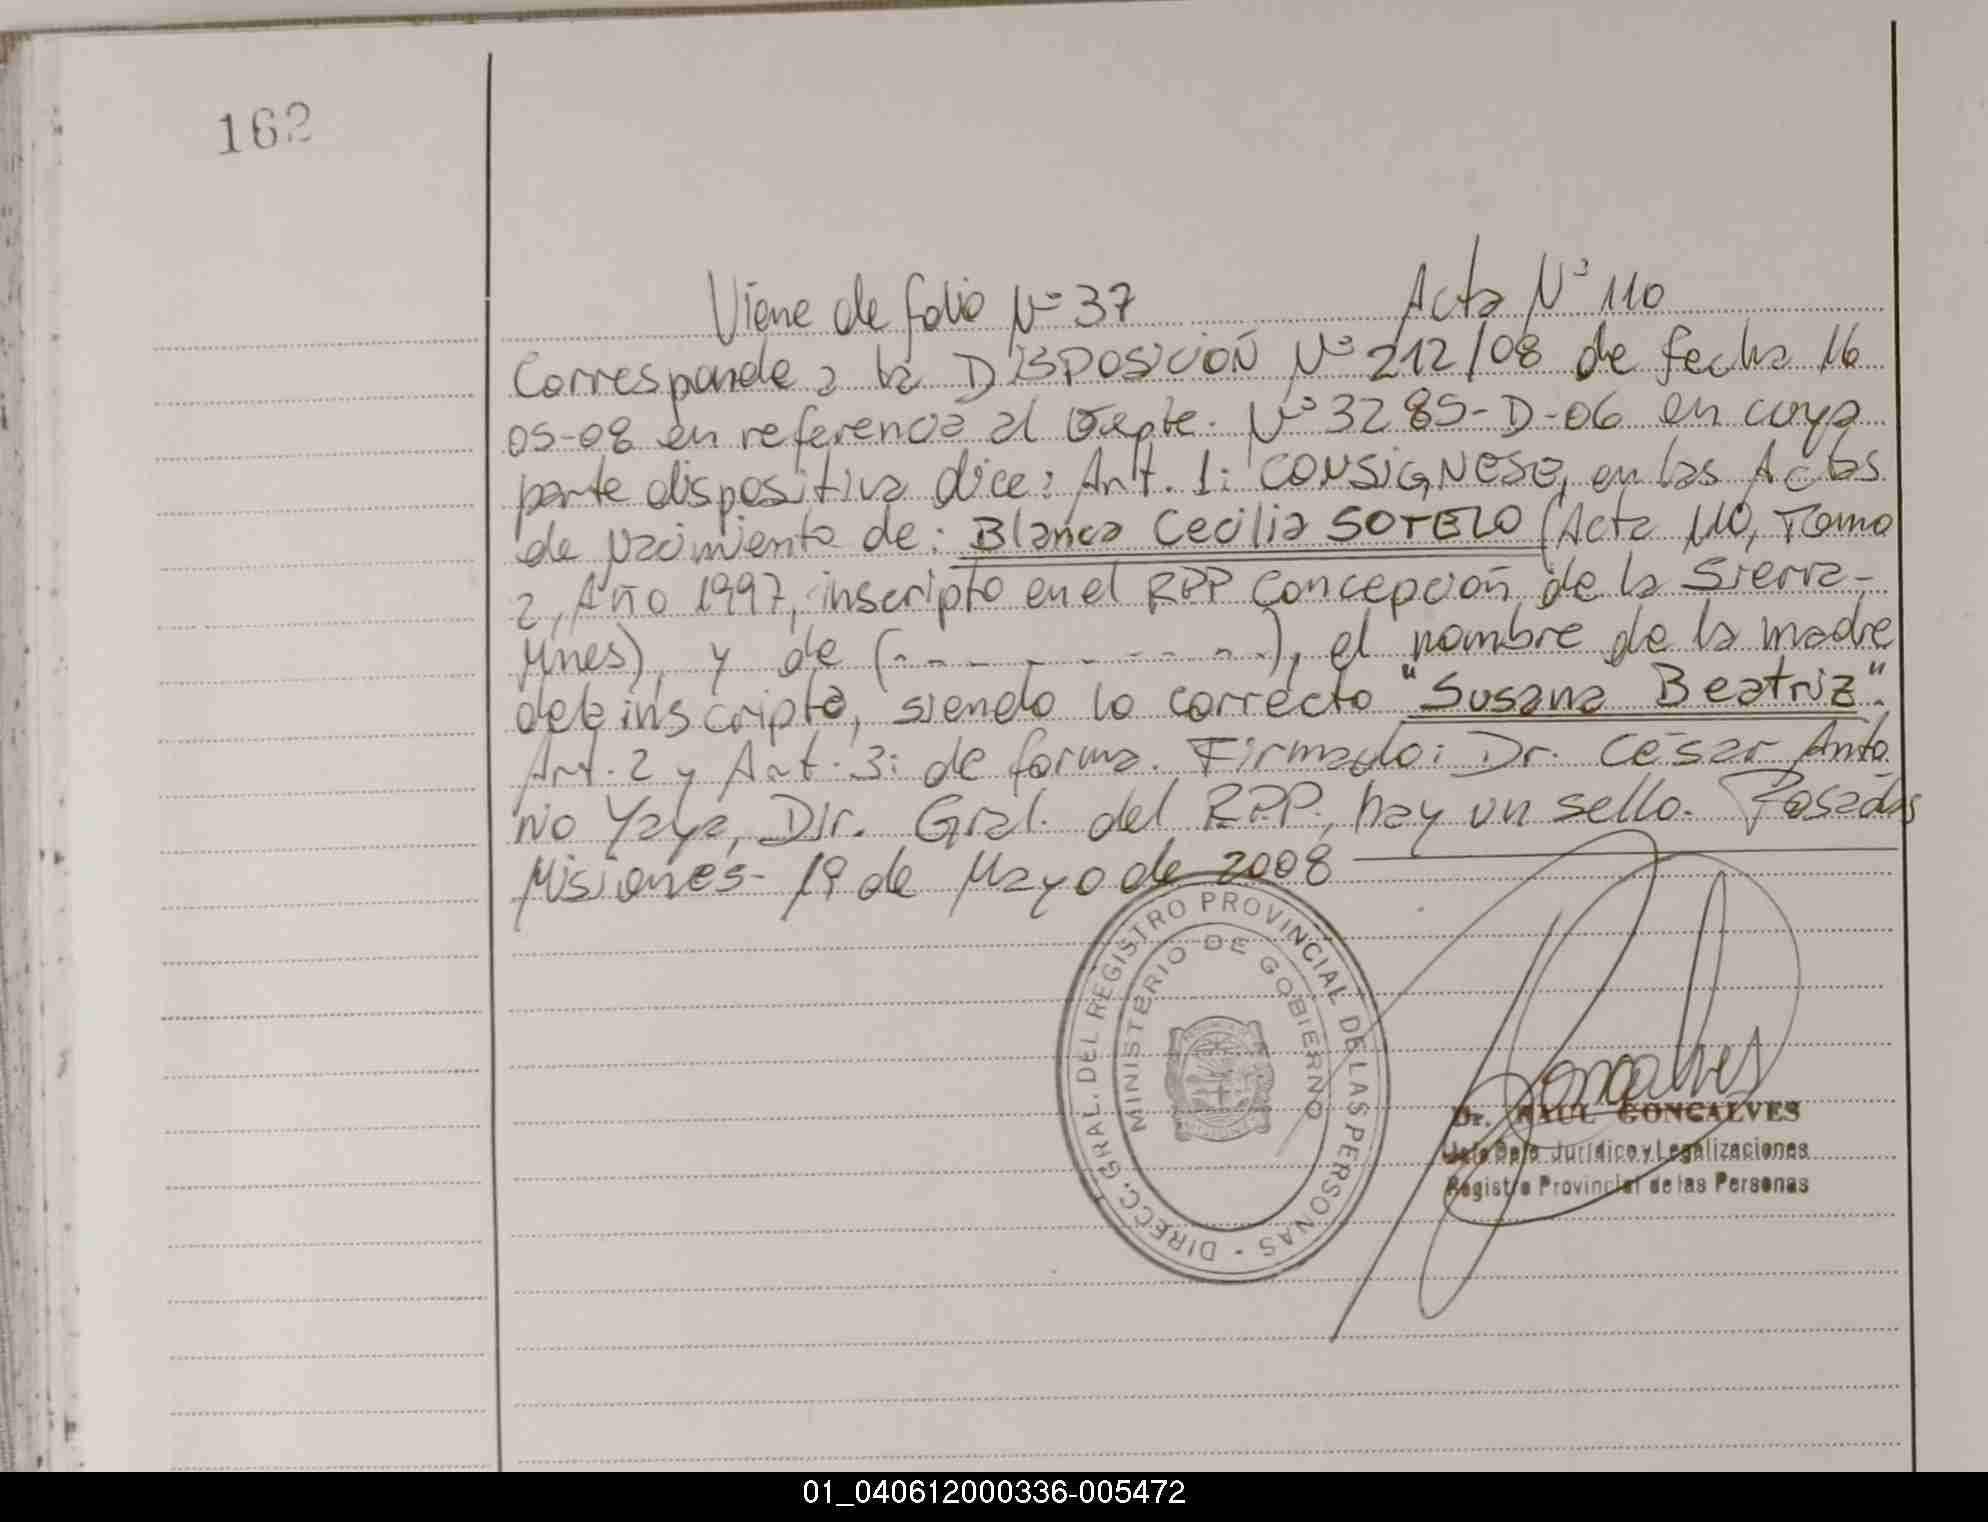 162
Viene de folio Nº 37 Acta Nº 110
Corresponde a la DISPOSICIOÑ Nº 212/08 de fecha 16
05-08 en referencia al Expte. Nº 3285-D-06 en cuya
parte dispositiva dice: Art. 1: CONSIGNESE, en las Actas
de Nacimiento de: Blanca Cecilia SOTELO (Acta 110, Tomo
2, Año 1997, inscripto en el RPP Concepcioñ de la Sierra-
Mnes), y de (- - - - - - - - -), el nombre de la madre
de la inscripta, siendo lo correcto "Susana Beatriz".
Art. 2 y Art. 3: de forma. Firmado: Dr. César Anto
nio Yaya, Dir. Gral. del RPP., hay un sello. Posadas
Misiones- 19 de Mayo de 2008
DIRECC. GRAL. DEL REGISTRO PROVINCIAL DE LAS PERSONAS -
MINISTERIO DE GOBIERNO
Goncalves
Dr. RAUL GONCALVES
Jefe Dpto Jurídico y Legalizaciones
Registro Provincial de las Personas
01_040612000336-005472